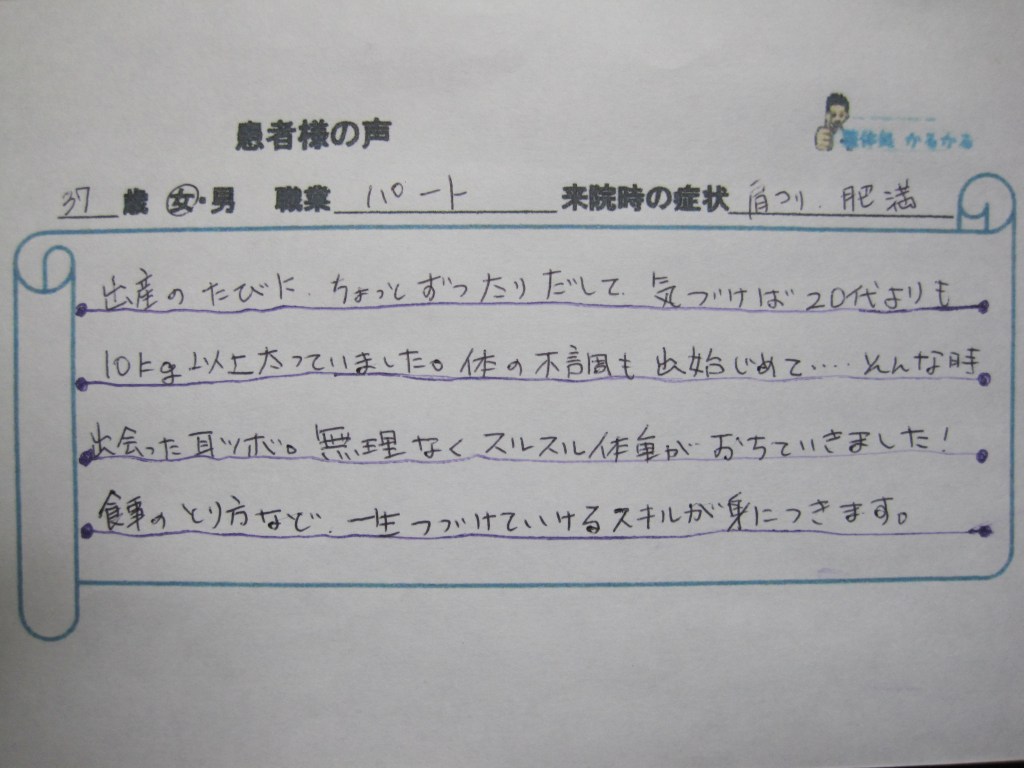 患者様の声
整体処 かるかる
37 歳 女・男 職業 パート 来院時の症状 肩コリ、肥満
出産のたびに、ちょっとずつたりだして、気づけば20代よりも
10kg以上太っていました。体の不調も出始じめて‥‥そんな時
出会った耳ツボ。無理なくスルスル体重がおちていきました!
食事のとり方など、一生つづけていけるスキルが身につきます。